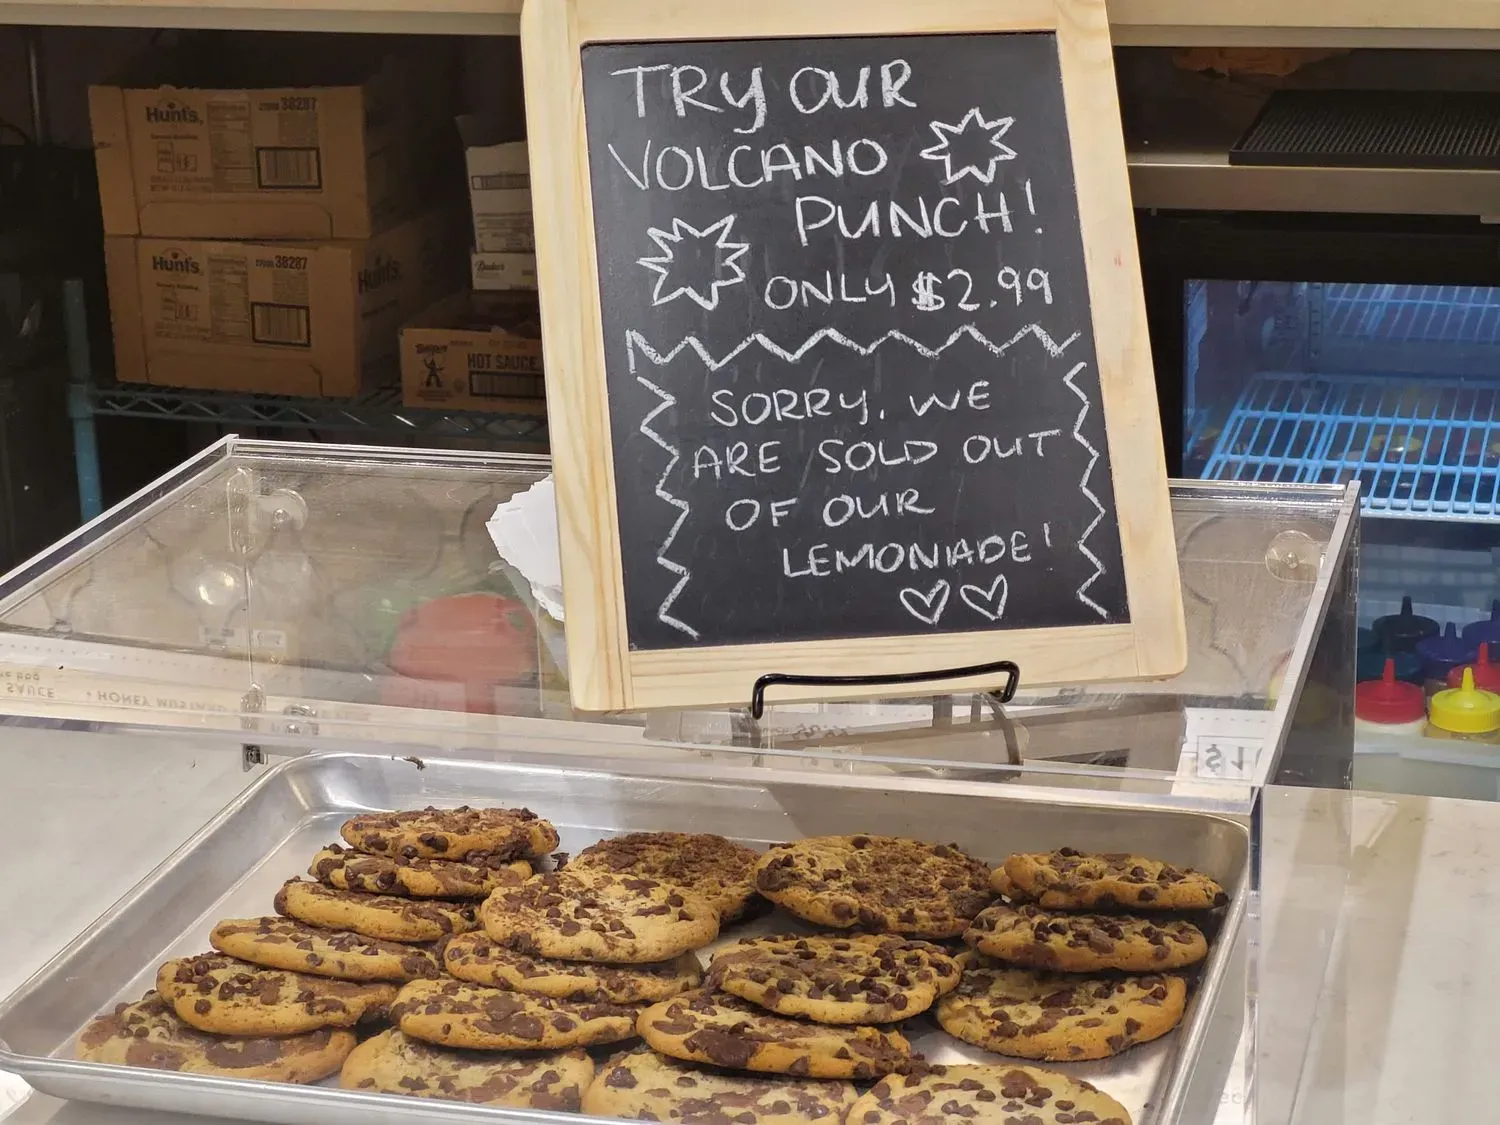 TRY OUR
VOLCANO
PUNCH!
ONLY $2.99
SORRY, WE
ARE SOLD OUT
OF OUR
LEMONADE!
Hunt's
38287
Hunt's
38287
Hunt's
HOT SAUCE
SAUCE
• HONEY MUSTARD